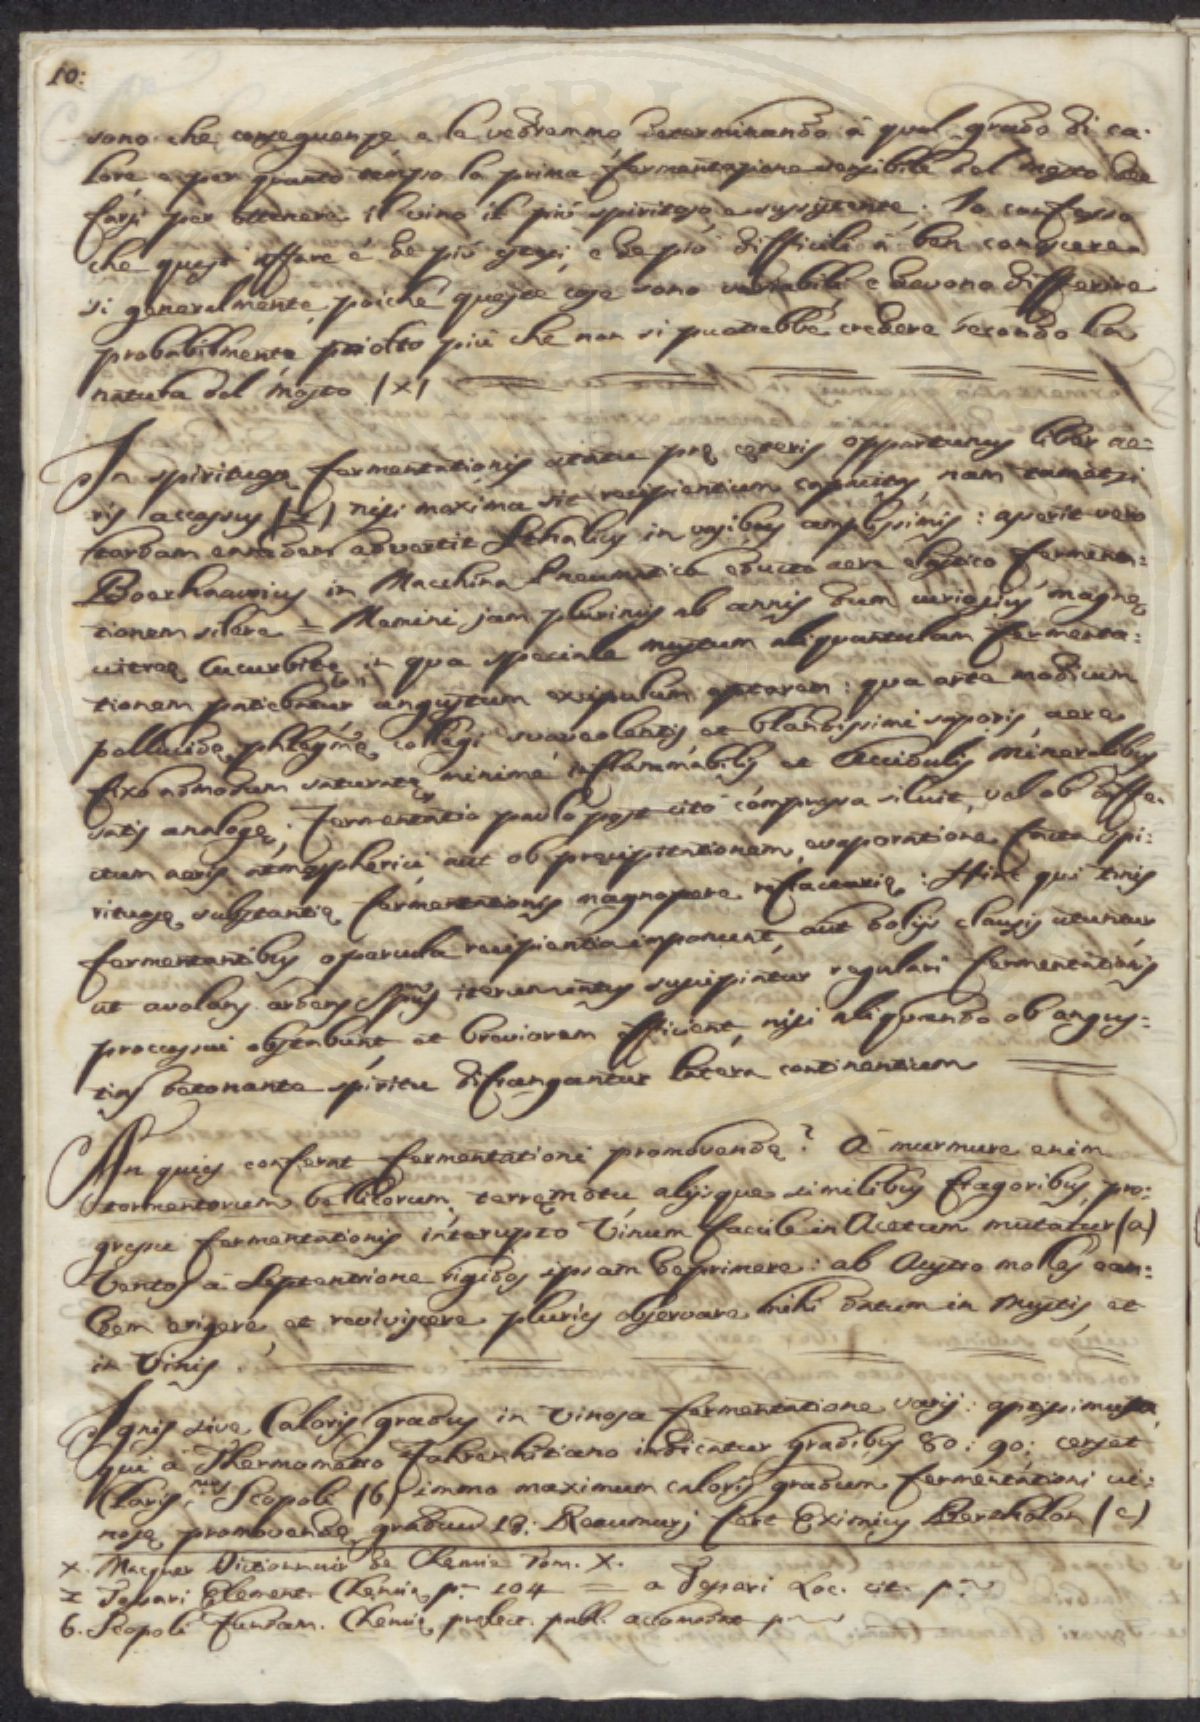 10:
sono che conseguenze e le vedremmo determinando à qual grado di ca-
lore e per quanto tempo la prima fermentazione sensibile del mosto dee
farsi per ottenere il vino il più spiritoso e sussistente: Io confesso
che quest' affare è de più essenz, e de più difficili à ben conoscere
si generalmente, poiche queste cose sono variabili e devono differire
probabilmente molto più che non si puotrebbe credere secondo la
natura del mosto (X)
In spirituosæ fermentationis statu præ cæteris opportunus liber ae=
ris accessus (I) nisi maxima sit recipientium capacitas, nam tametsi
tardam eamdem advertit Sthalius in vasibus amplissimis: asserit vero
Boerhaavius in Macchina Pneumatica educto aere elastico fermenta=
tionem silere = Memini jam plurimis ab annis dum curiosius magnæ
vitreæ Cucurbitæ in qua speciale mustum aliquantulam fermenta=
tionem patiebatur angustum excipulum aptarem: qua arte modicum
pellucidæ phlegmæ collegi suaveolentis et blandissimi saporis aere
fixo admodum saturatæ minimè inflammabilis et Accidulis mineralibus
satis analogæ; Fermentatio paulo post cito compressa siluit, vel ob deffe-
ctum aeris atmospherici, aut ob precipitationem, evaporatione facta spi=
rituosæ substantiæ fermentationis magnopere refractariæ: Hinc qui tinis
fermentantibus opercula recipientia imponunt, aut dolijs clausis utuntur
ut avolans ardens Sptus iterum suscipiatur regulari fermentationis
processui obstabunt et breviorem efficient, nisi aliquando ob angus=
tias detonante spiritu difrangantur latera continentium
An quies conferat fermentationi promovendæ? A murmure enim
tormentorum bellicorum, terræmotu, alijsque similibus fragoribus, pro=
gressu fermentationis interupto Vinum facile in Acetum mutatur (a)
Ventos à Septentrione rigidos ipsam deprimere: ab Austro molles eam=
dem erigere, et reviviscere pluries observare mihi datum in Mustis, et
in Vinis.
Ignis sive Caloris gradus in Vinosa fermentatione varij: aptissimus
qui à Thermometro Fahrenhitiano indicatur gradibus 80: 90: censet
Claris.mus Scopoli (6) immo maximum caloris gradum fermentationi vi=
nosæ promovendæ graduu 18: Reaumurj fert Eximius Bertholon (c)
X. Macquer Dictionnair de Chemie Tom. X.
I Tessari Element. Chemiæ p. 104 = a Tessari Loc. cit. p.
6. Scopoli Fundam. Chemiæ prelect. publ. accomodat p.